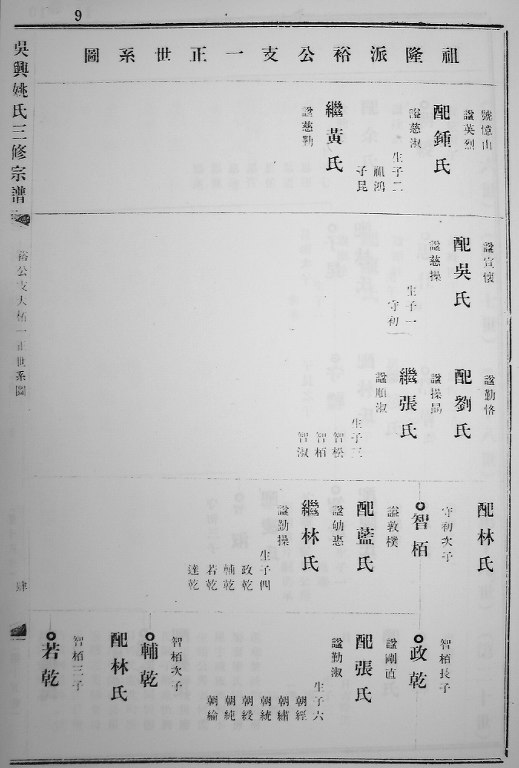 9
祖隆派裕公支一正世系圖
號憶山
諡英烈
配鍾氏
諡慈淑
生子二
祖鴻
子昆
繼黃氏
諡慈勤
諡宣懷
配吳氏
諡慈操
生子一
守初
諡勤恪
配劉氏
諡操勗
繼張氏
諡順淑
生子三
智松
智栢
智淑
配林氏
守初次子
智栢
諡敦樸
配藍氏
諡幼惠
繼林氏
諡勤操
生子四
政乾
輔乾
若乾
達乾
智栢長子
政乾
諡剛直
配張氏
諡勤淑
生子六
朝經
朝緒
朝統
朝綬
朝純
朝綸
智栢次子
輔乾
配林氏
智栢三子
若乾
吳興姚氏三修宗譜
裕公支大柘一正世系圖
肆